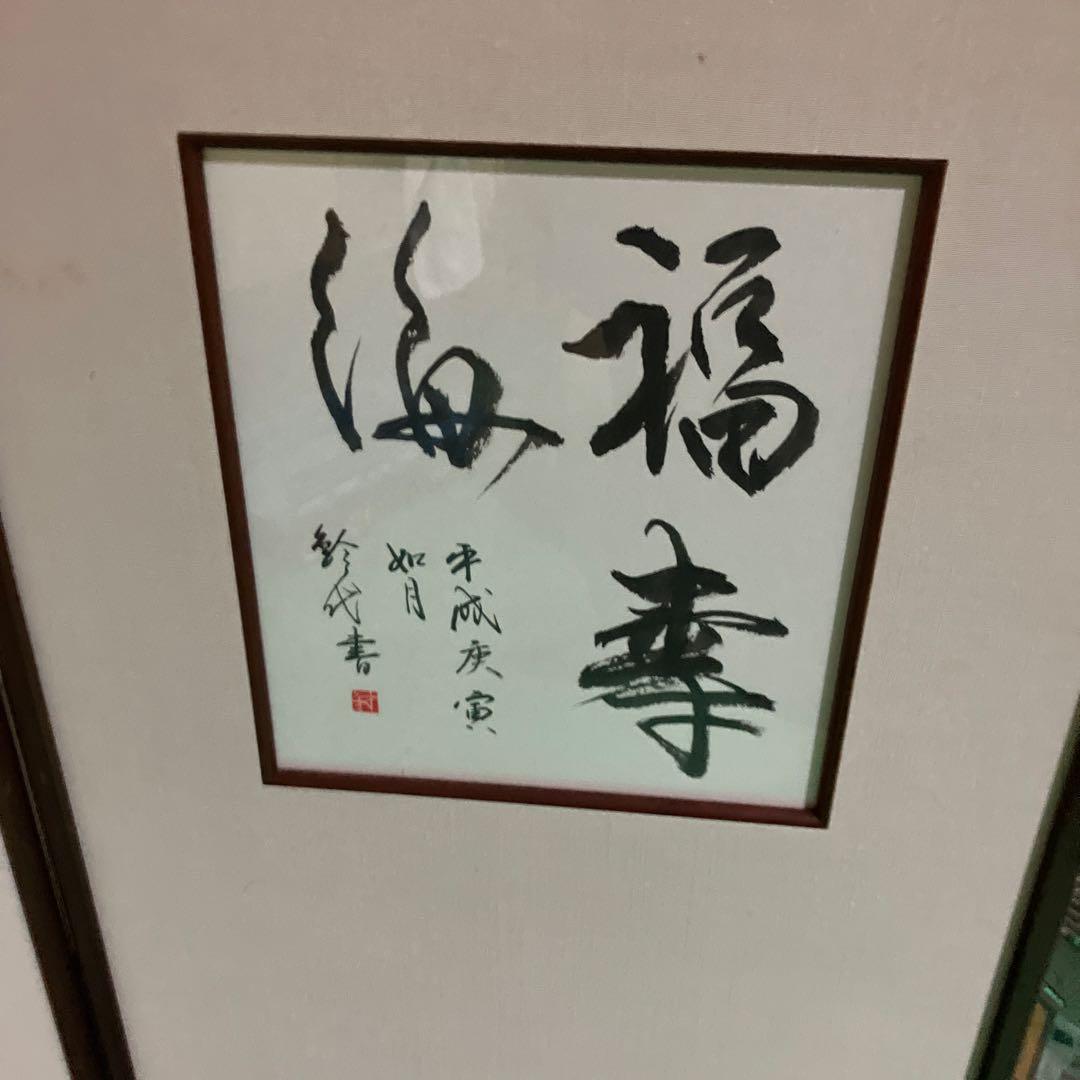 福寿
海
平成庚寅
如月
鈴代書